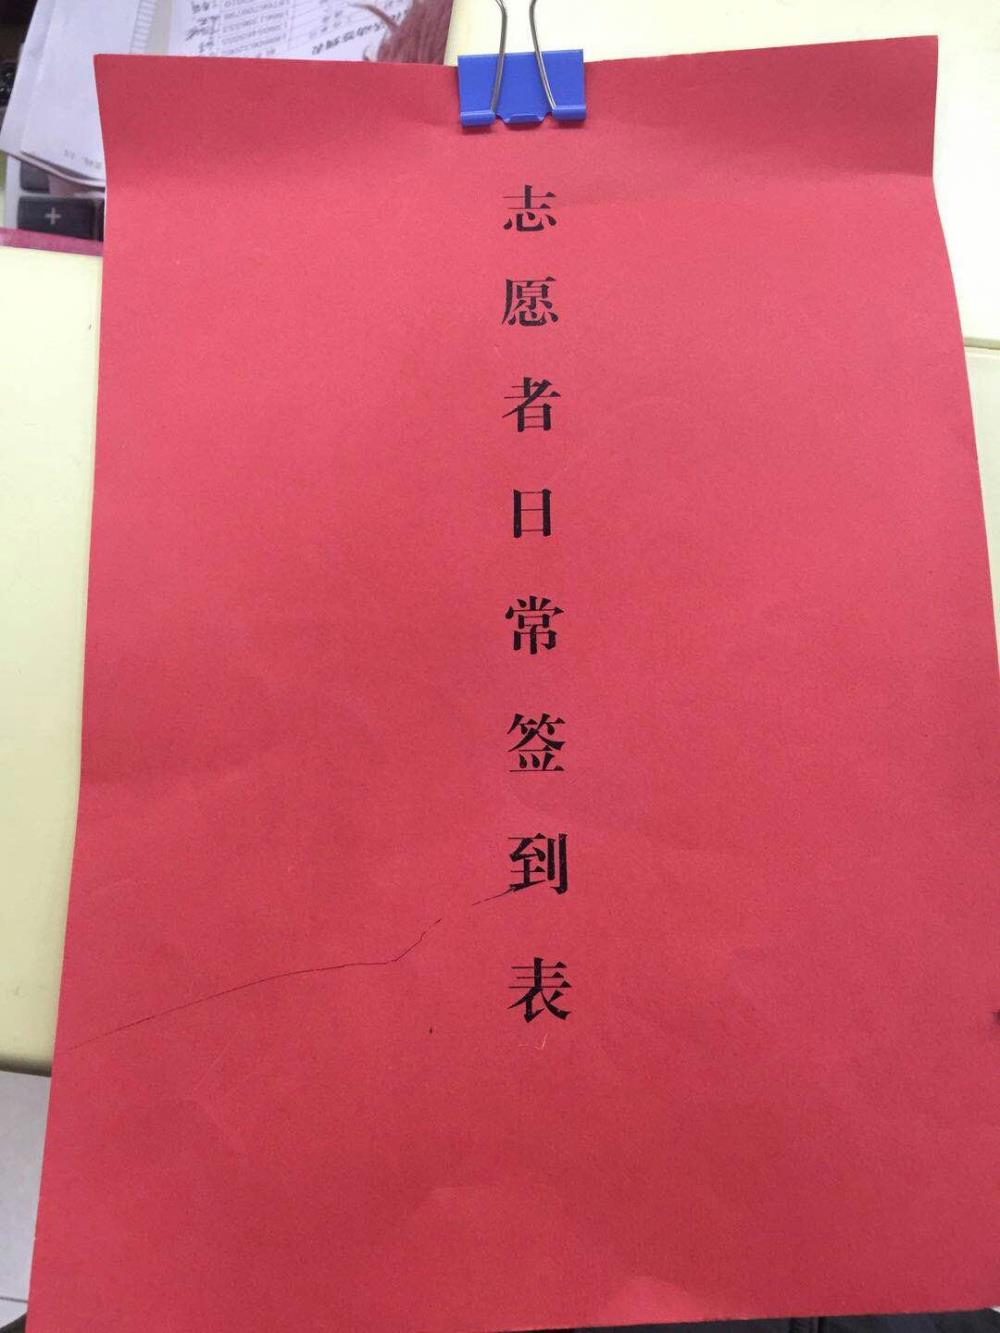 志愿者日常签到表